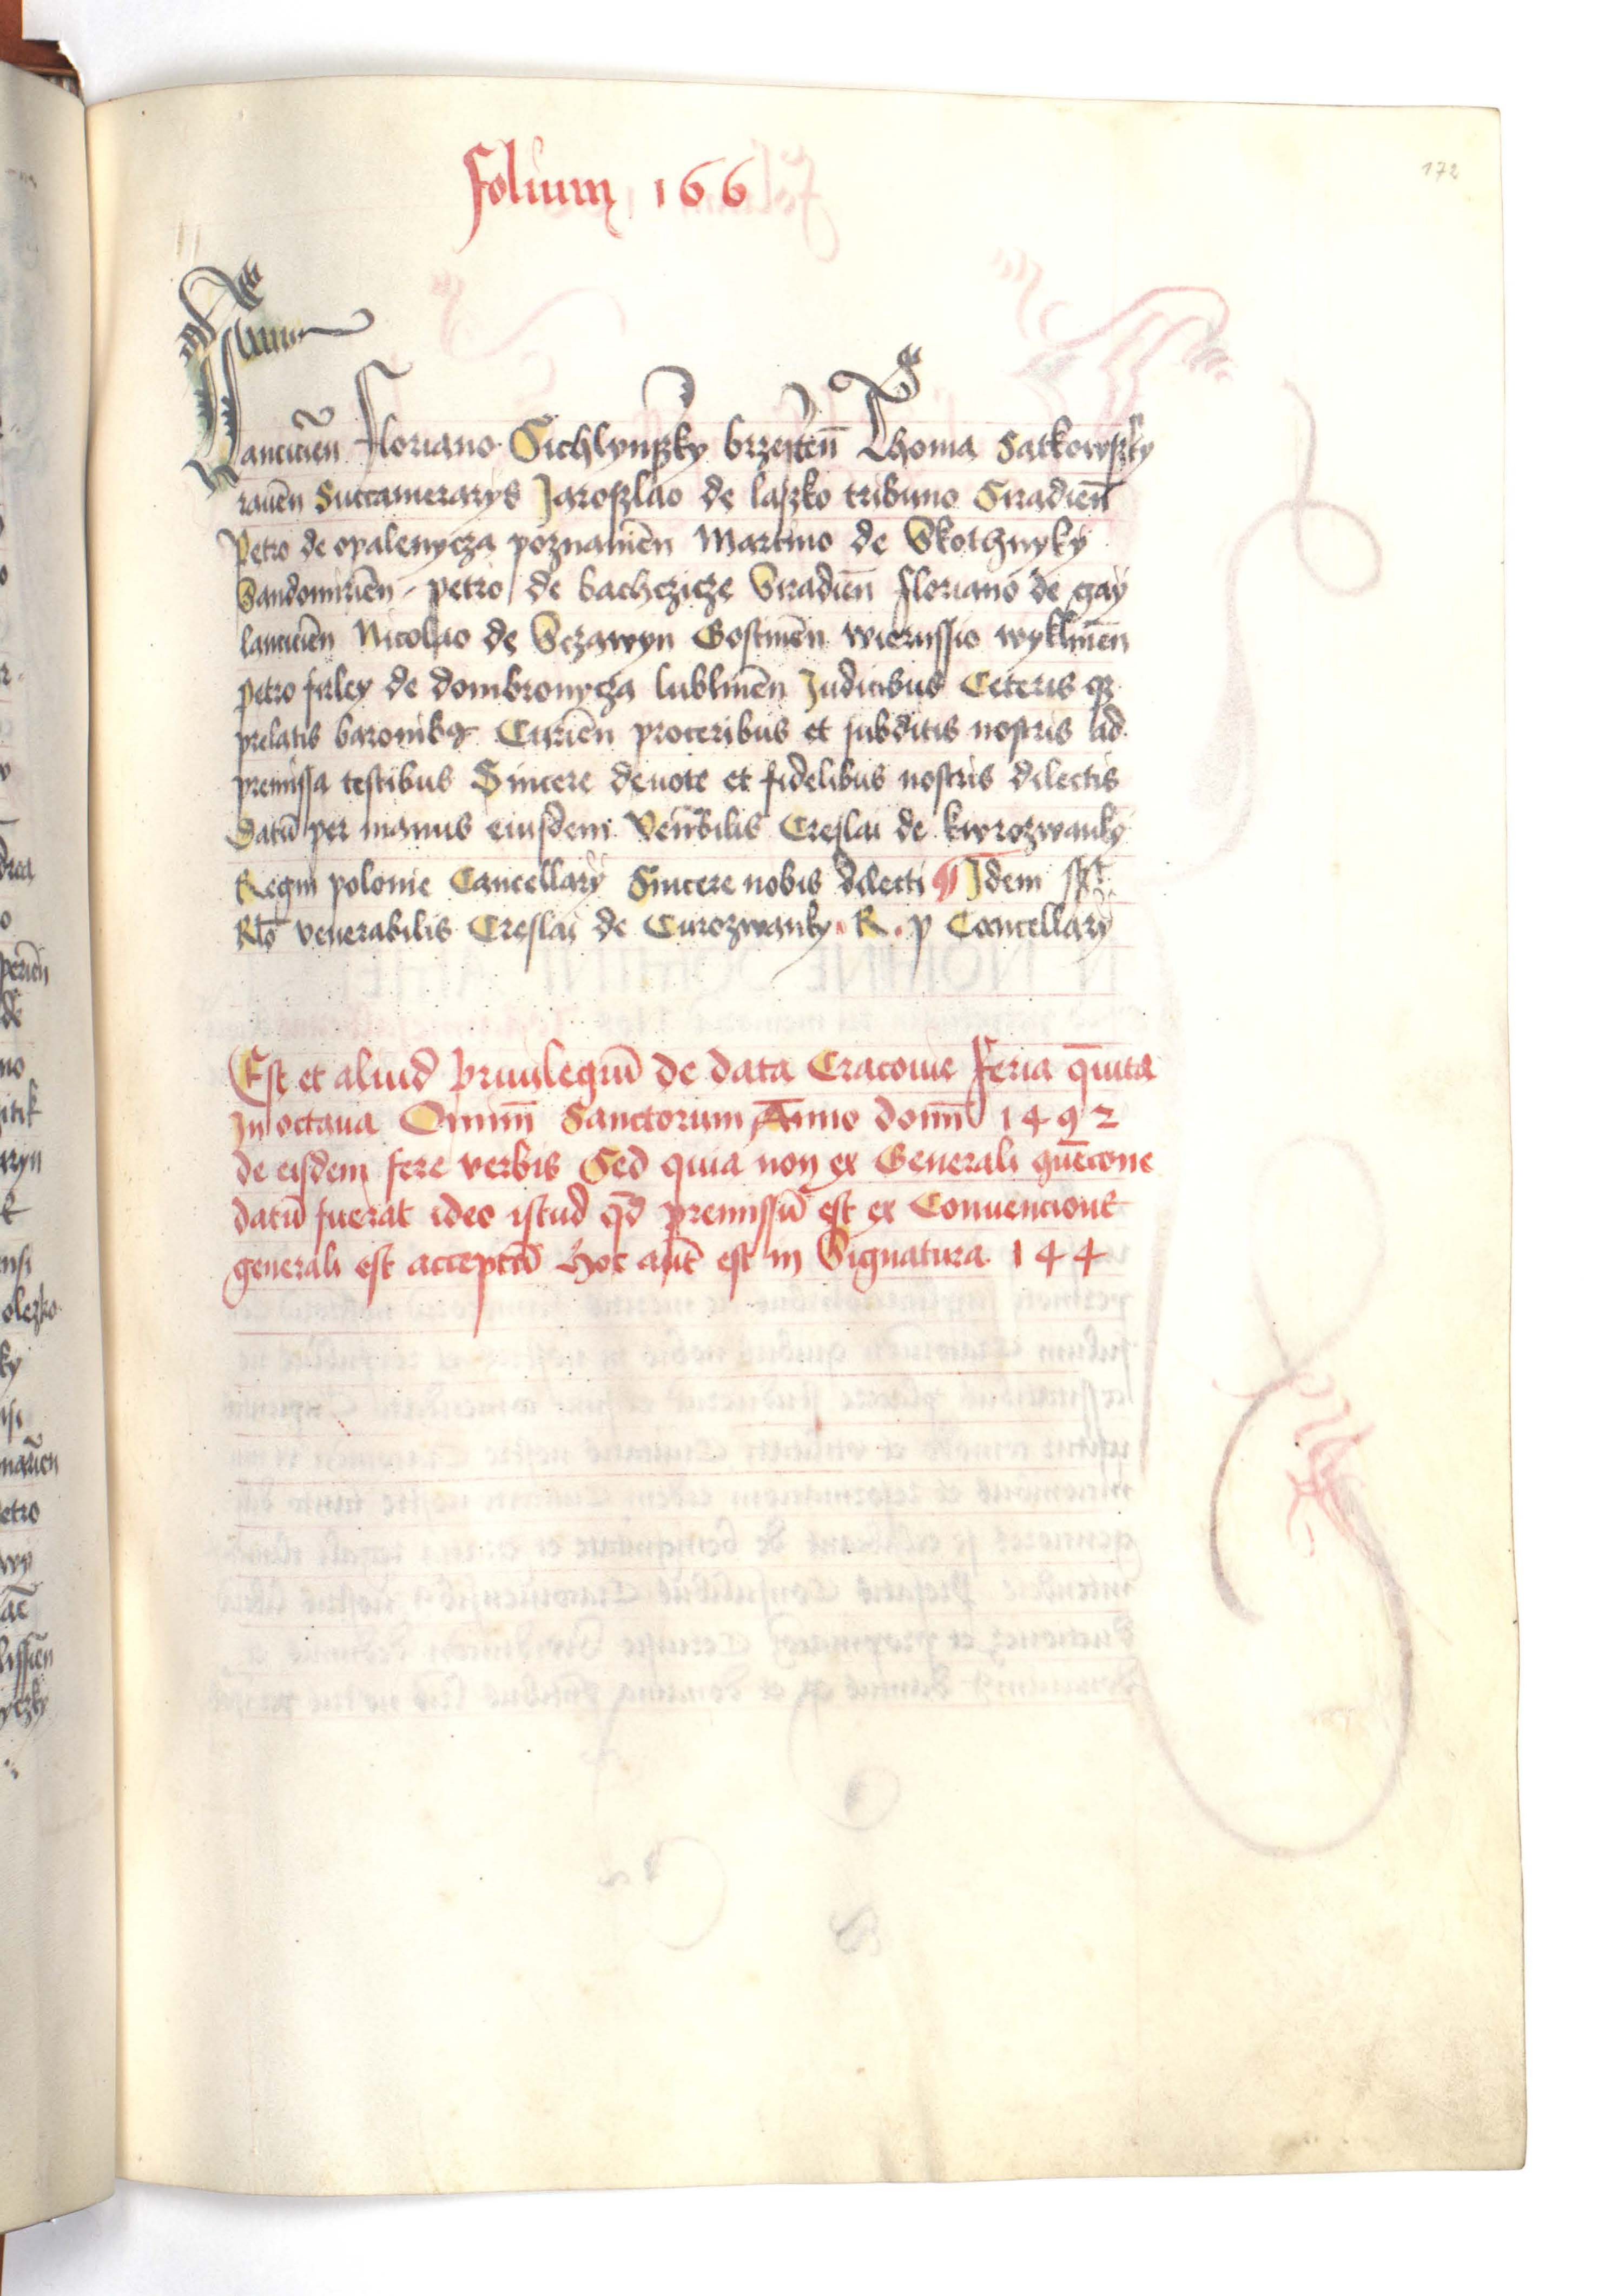 folium 166
172
lancicien̄ floriano Sichlynszky brzesten̄ Thoma Satkowszky
raven̄ Succamerarys Jaroszlao de laszko tribuno Siradien̄
Petro de opalenycza poznanien̄ Martino de Skothnyky
Sandomirien̄ petro de bachczicze Siradien̄ floriano de gay
lancicien̄ Nicolao de Sczawyn Gostinen̄ wierussio wyklinen̄
petro firley de dombronycza lublinen̄ Judicibus Ceteris qz
prelatis baronibꝫ Curien̄ proceribus et subditis nostris ad
premissa testibus Sincere devote et fidelibus nostris dilectis
Datū per manus eiusdem Ven̄bilis Creslai de kwrozwanky
Regni polonie Cancellary Sincere nobis dilecti ¶ Idem sst̄
Rl̄o venerabilis Creslai de Curozwanky R. p Cancellary
Est et aliud privilegiū de data Cracovie feria q̄uita
In octava Omniū Sanctorum Anno domī 1492
de eisdem fere verbis Sed quia non ex Generali qvēcone
datū fuerat ideo istud qd̄ premissū est ex Convencione
generali est acceptū hoc aūt est in Signatura 144